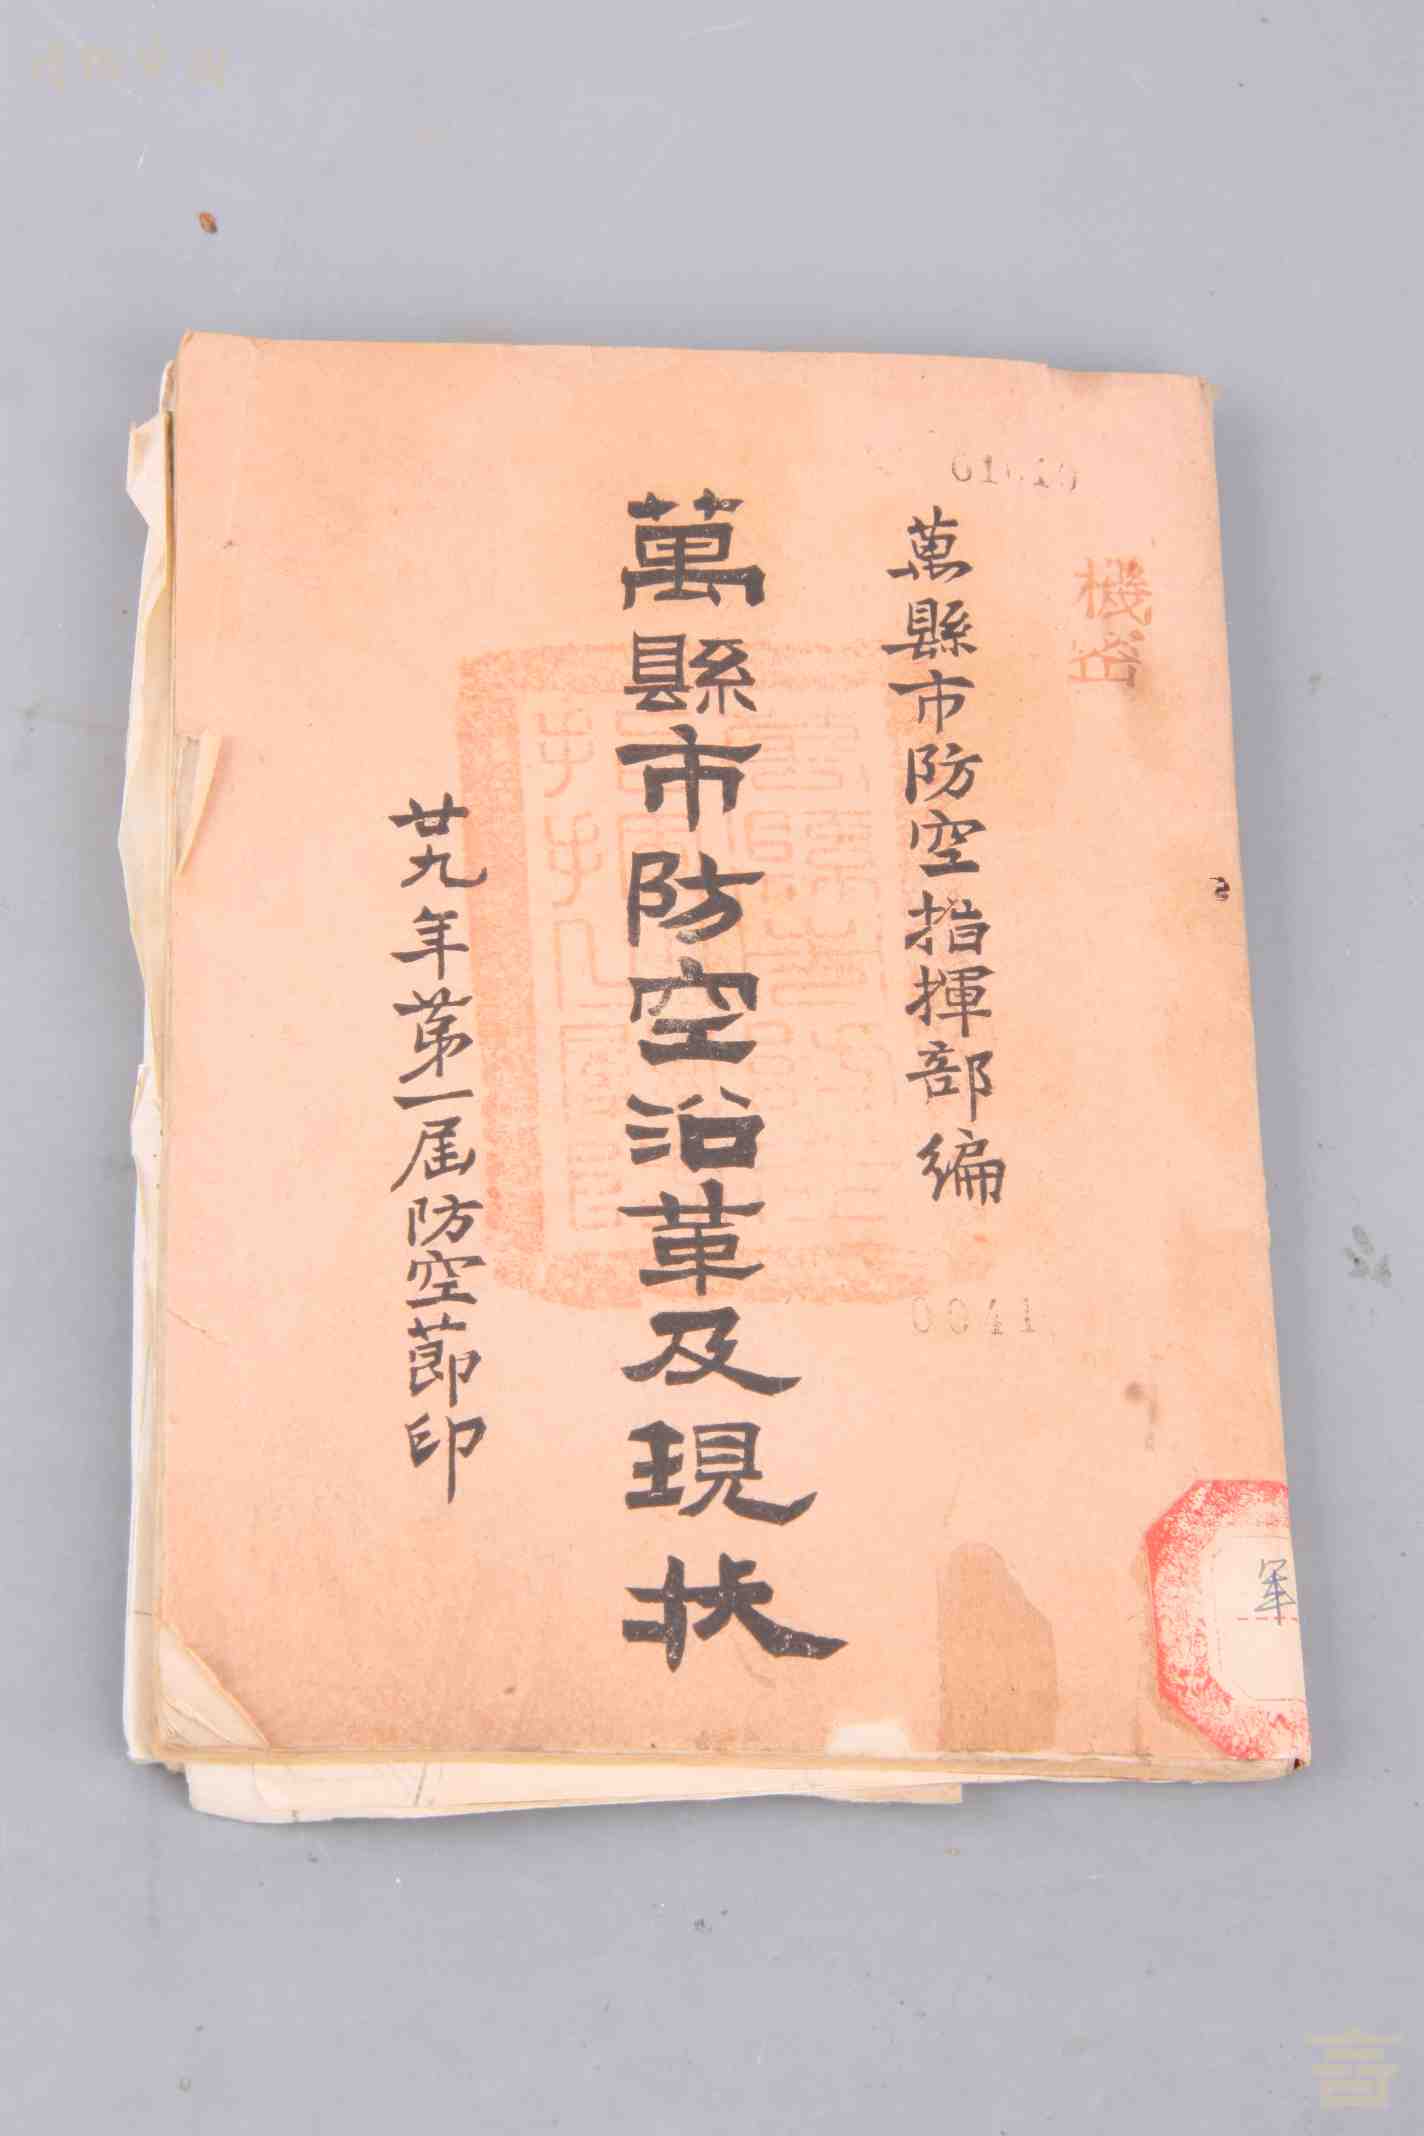 機密
萬縣市防空指揮部編
萬縣市防空沿革及現狀
廿九年第一届防空節印
0041
軍